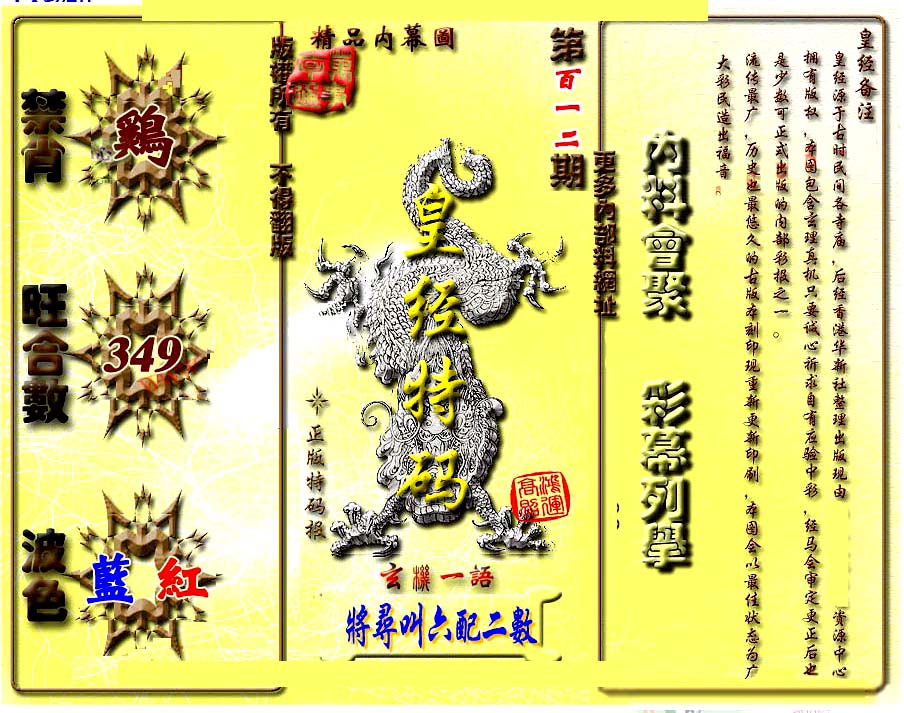 皇经备注
皇经源于古时民间各寺庙,后经香港华新社整理出版现由 资源中心
拥有版权,本图包含玄理真机只要诚心祈求自有应验中彩,经马会审定更正后也
是少数可正式出版的内部彩报之一。
流传最广,历史也最悠久的古版本刻印现重新更新印刷,本图会以最佳状态为广
大彩民造出福音
內料會聚 彩幕列舉
更多內部料網址
第百一二期
精品内幕圖
版權所有 不得翻版
皇经特码
正版特码报
鴻運高照
玄機一語
將尋叫六配二數
禁肖
鷄
旺合數
349
波色
藍 紅